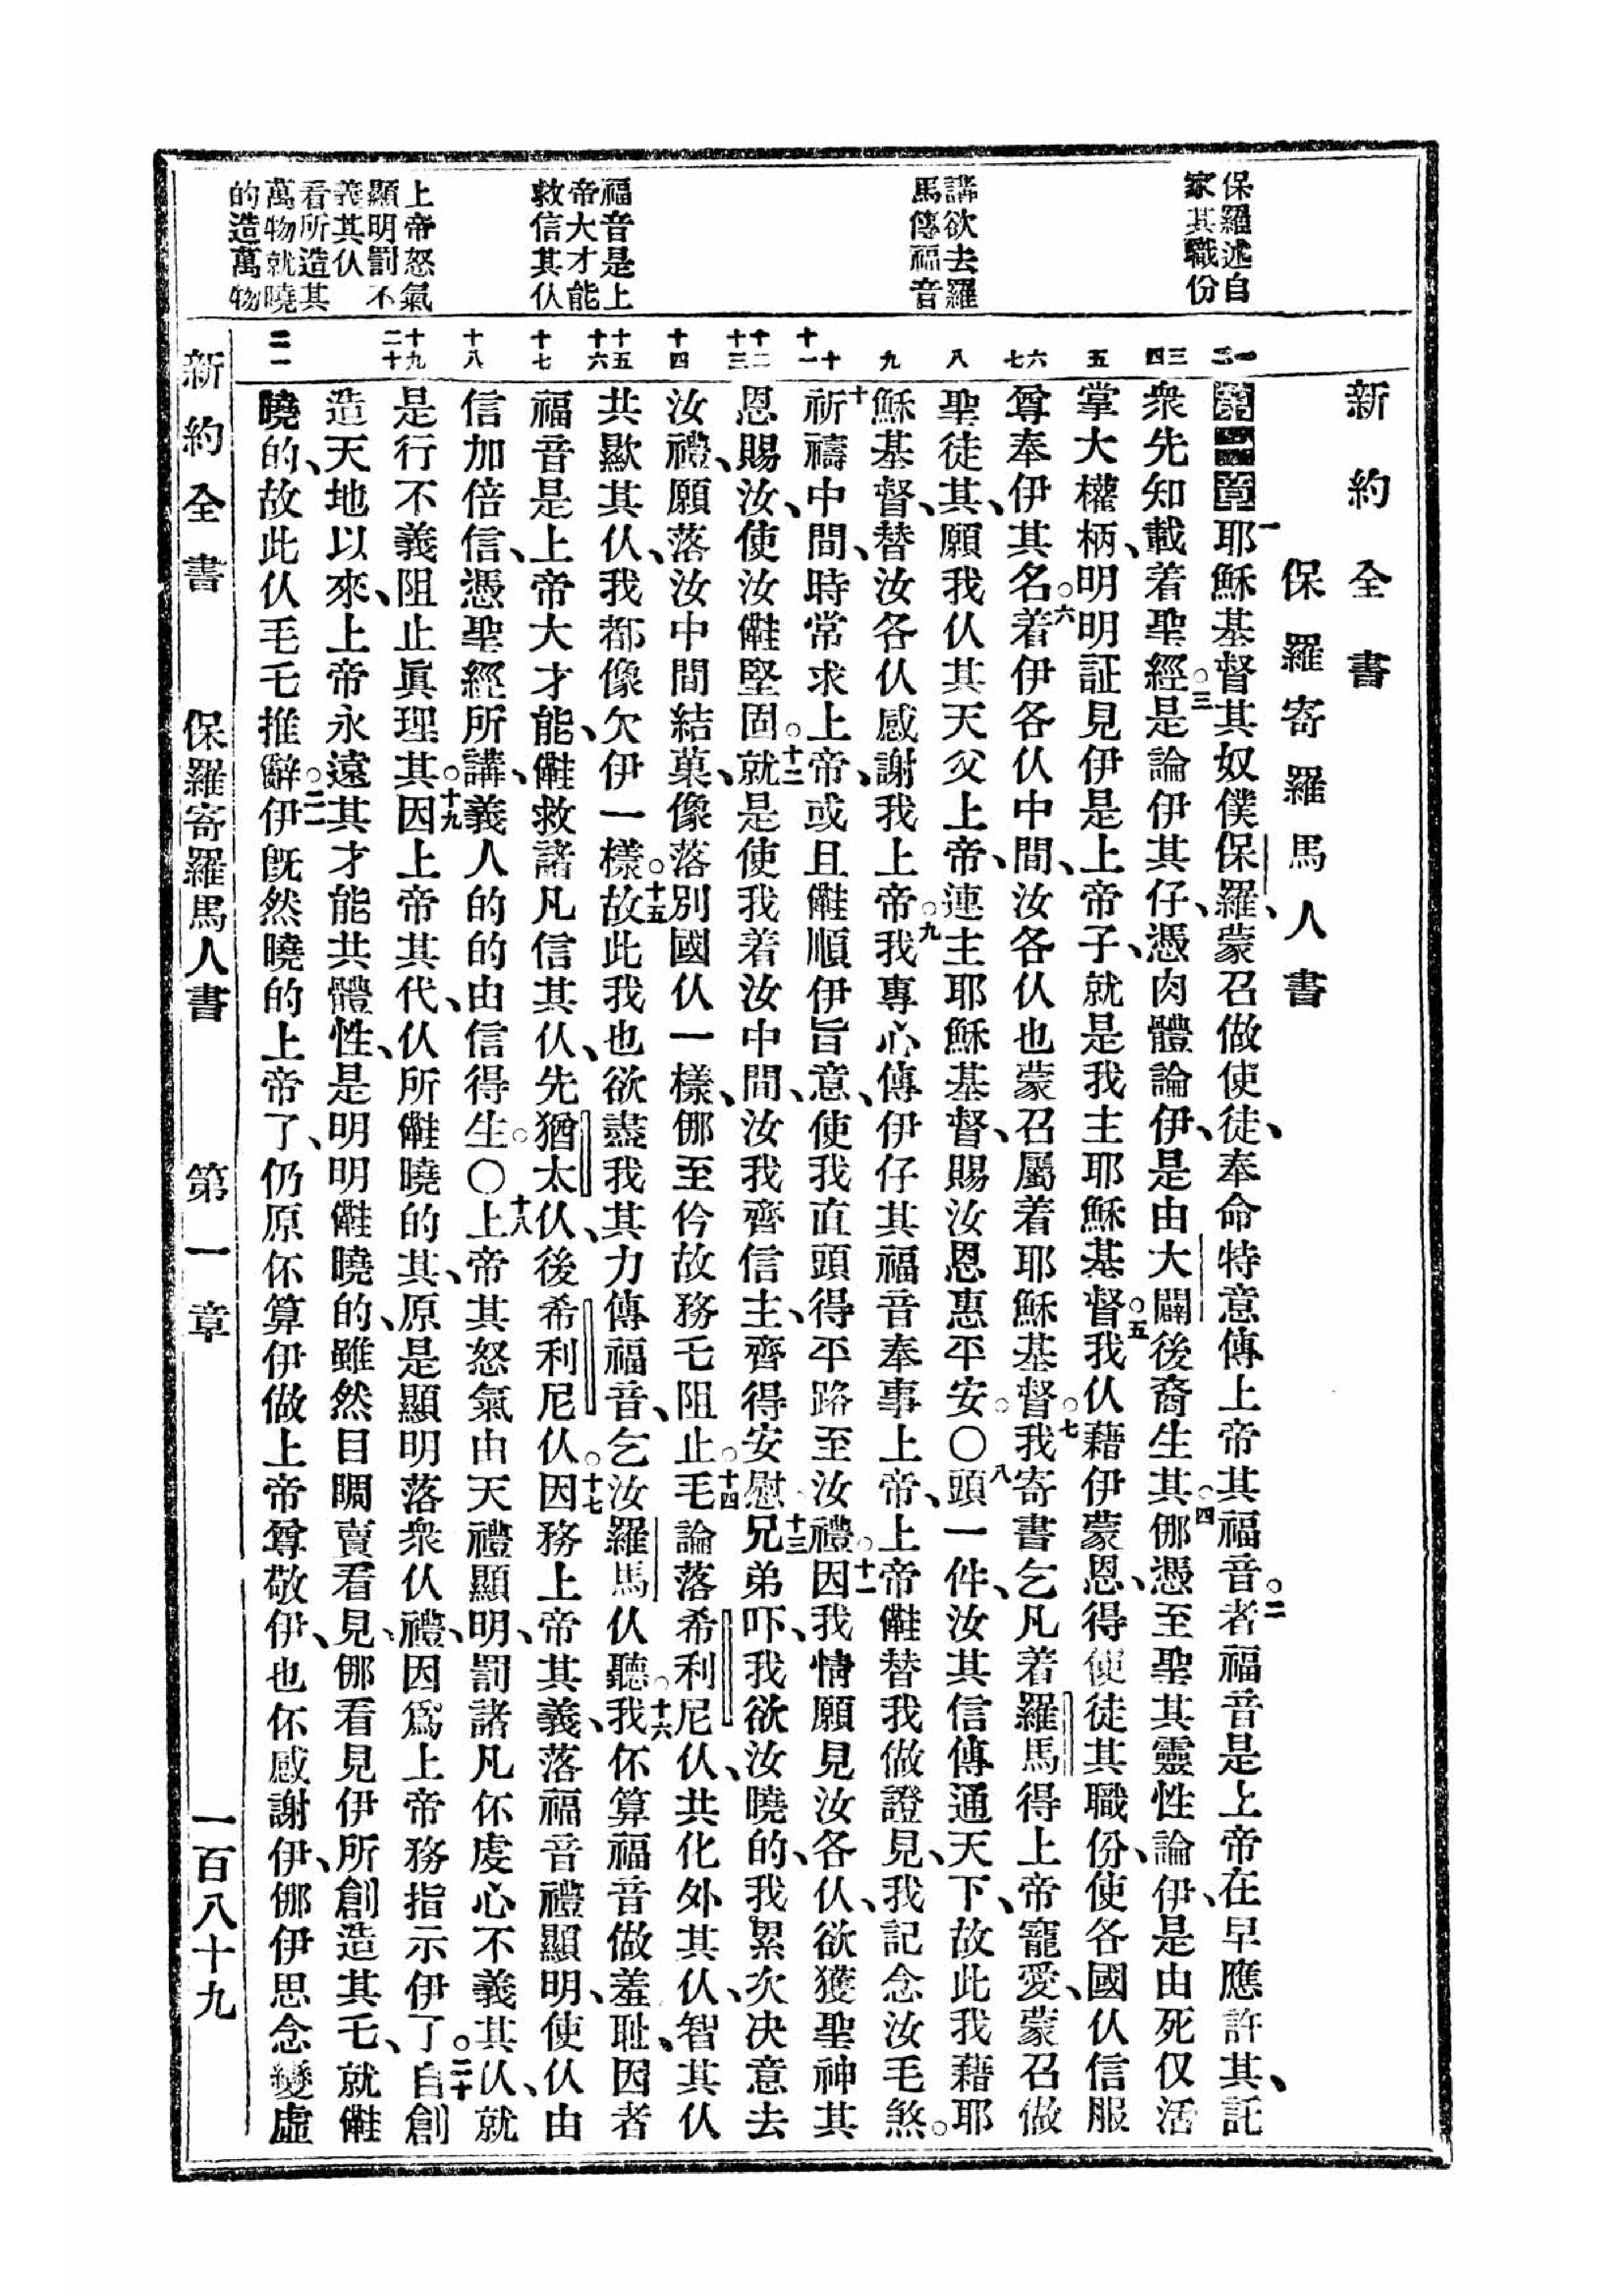 新約全書
保羅寄羅馬人書
保羅述自
家其職份
講欲去羅
馬傳福音
福音是上
帝大才能
救信其仫
上帝怒氣
顯明罰不
義其仫
看所造其
萬物就曉
的造萬物
一二
三四
五
六七
八
九
十十一
十二十三
十四
十五十六
十七
十八
十九二十
二一
第一章一耶穌基督其奴僕保羅、蒙召做使徒、奉命特意傳上帝其福音。二者福音是上帝在早應許其、託
衆先知載着聖經。三是論伊其仔、憑肉體論伊、是由大闢後裔生其。四㑚憑至聖其靈性論伊、是由死仅活
掌大權柄、明明証見伊是上帝子、就是我主耶穌基督。五我仫藉伊蒙恩、得使徒其職份、使各國仫信服
尊奉伊其名。六着伊各仫中間、汝各仫也蒙召屬着耶穌基督。七我寄書乞凡着羅馬得上帝寵愛、蒙召做
聖徒其、願我仫其天父上帝、連主耶穌基督、賜汝恩惠平安。〇八頭一件、汝其信傳通天下、故此我藉耶
穌基督、替汝各仫感謝我上帝。九我專心傳伊仔其福音奉事上帝、上帝㒕替我做證見、我記念汝毛煞。
十祈禱中間、時常求上帝、或且㒕順伊旨意、使我直頭得平路至汝禮。十一因我情願見汝各仫、欲獲聖神其
恩賜汝、使汝㒕堅固。十二就是使我着汝中間、汝我齊信主、齊得安慰。十三兄弟吓、我欲汝曉的、我累次决意去
汝禮、願落汝中間結菓、像落別國仫一樣、㑚至伶故務乇阻止。十四毛論落希利尼仫、共化外其仫、智其仫
共歟其仫、我都像欠伊一樣。十五故此我也欲盡我其力傳福音、乞汝羅馬仫聽。十六我伓算福音做羞耻、因者
福音是上帝大才能、㒕救諸凡信其仫、先猶太仫、後希利尼仫。十七因務上帝其義、落福音禮顯明、使仫由
信加倍信、憑聖經所講、義人的的由信得生。〇十八上帝其怒氣由天禮顯明、罰諸凡伓虔心不義其仫、就
是行不義阻止眞理其。十九因上帝其代、仫所㒕曉的其、原是顯明落衆仫禮、因爲上帝務指示伊了。二十自創
造天地以來、上帝永遠其才能共體性、是明明㒕曉的、雖然目睭賣看見、㑚看見伊所創造其乇、就㒕
曉的、故此仫毛乇推辭。二一伊旣然曉的上帝了、仍原伓算伊做上帝尊敬伊、也伓感謝伊、㑚伊思念變虛
新約全書 保羅寄羅馬人書 第一章 一百八十九